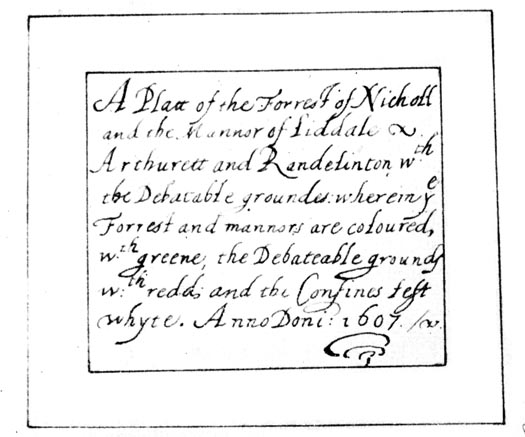 A Platt of the Forrest of Nicholl
and the Mannor of Liddale &
Arthurett and Randelinton, wth
the Debatable groundes: wherein ye
Forrest and mannors are coloured,
w:th greene, the Debateable grounds
w:th redd; and the Confines left
whyte. Anno Doni: 1607.